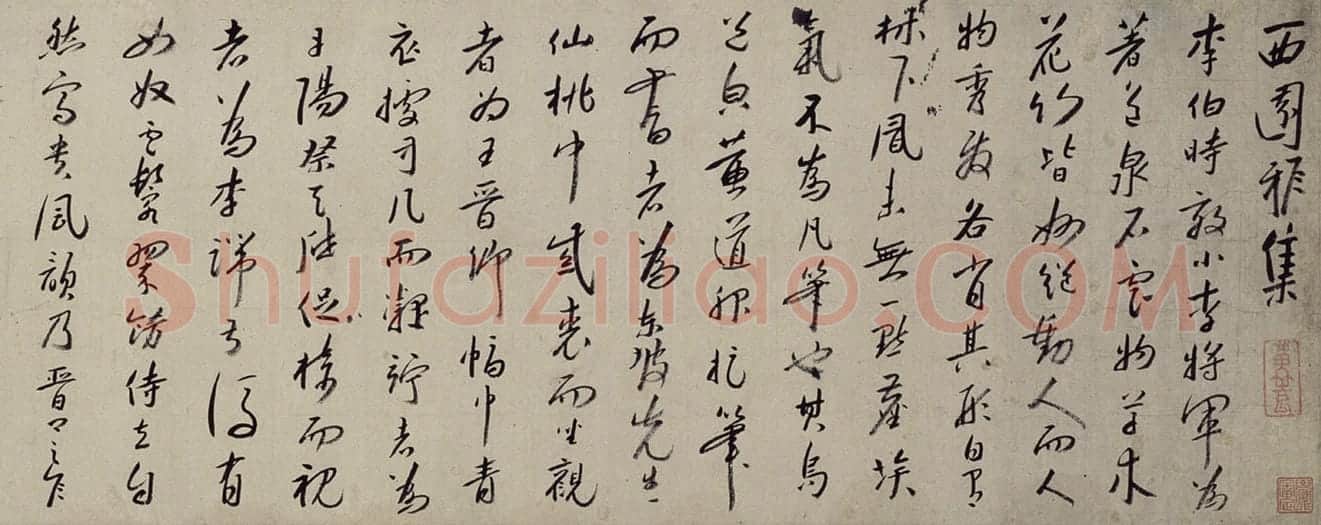 西園雅集
李伯時效小李將軍為
著色泉石雲物草木
花竹皆妙絕動人而人
物秀發各肖其形自有
林下風味無一點塵埃
氣不為凡筆也其烏
黃道服捉筆
而書者為東坡先生
仙桃巾紫裘而坐觀
者為王晉卿幅巾青
衣據方几而凝竚者為
丹陽蔡天啟捉椅而視
者為李端叔後有
女奴雲鬟翠飾侍立自
然富貴風韻乃晉卿之
Shufaziliao.COM